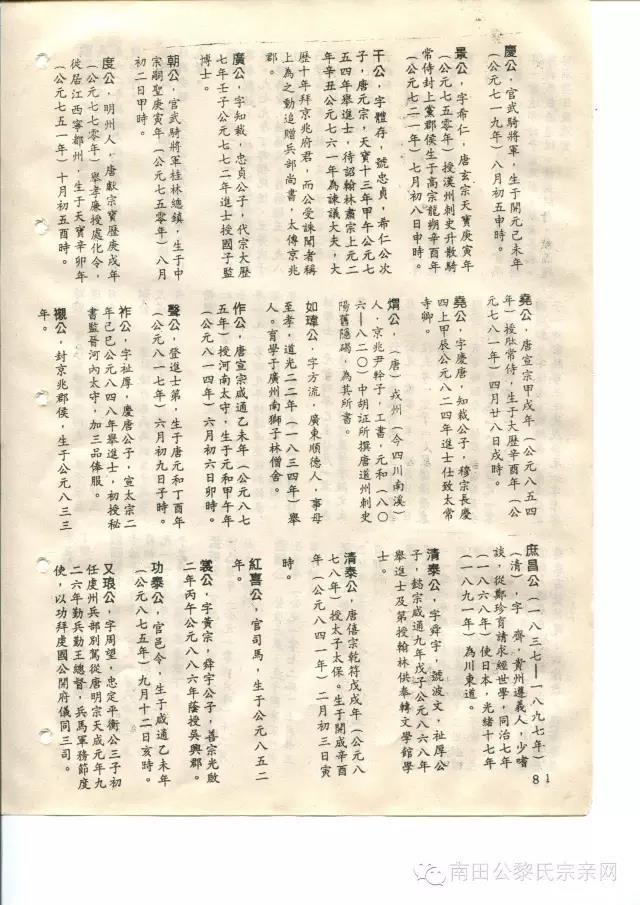 慶公，官武騎將軍，生于開元己未年
（公元七一九年）八月初五申時。
最公，字希仁，唐玄宗天寶庚寅年
（公元七五零年）授漢州刺史升散騎
常侍封上黨郡侯生于高宗龍朔辛酉年
（公元七二一年）七月初八日申時。
干公，字體存，號忠貞，希仁公次
子，唐元宗，天寶十三年甲午公元七
五四年舉進士，待詔翰林肅宗上元二
年辛丑公元七六一年為諫議大夫，大
歷十年拜京兆府君，而公受誅聞者稱
上為之動追贈兵部尚書，太傅京兆
郡。
廣公，字知裁，忠貞公子，代宗大歷
七年壬子公元七七二年進士授國子監
博士。
朝公，官武騎將軍桂林總鎮，生于中
宗嗣聖庚寅年（公元七五零年）八月
初二日甲時。
度公，明州人，唐獻宗寶歷庚戌年
（公元七七零年）舉孝廉授處化令，
從居江西寧都州，生于天寶辛卯年
（公元七五一年）十月初五酉時。
堯公，唐宣宗甲戌年（公元八五四
年）授肽常侍，生于大歷辛酉年（公
元七八一年）四月廿八日戌時。
堯公，字慶唐，知裁公子，穆宗長慶
四上甲辰公元八二四年進士仕致太常
寺卿。
燗公，（唐）戎州（今四川南溪）
人，京兆尹幹子，工書，元和（八〇
六—八二〇）中胡証所撰唐道州刺史
陽舊隱碣，為其所書。
如瑋公，字方流，廣東順德人，事母
至孝，道光二二年（一八三四年）舉
人。育學于廣州南獅子林僧舍。
作公，唐宣宗咸通乙未年（公元八七
五年）授河南太守，生于元和甲午年
（公元八一四年）六月初六日卯時。
聲公，登進士第，生于唐元和丁酉年
（公元八一七年）六月初九日子時。
祚公，字祉厚，慶唐公子，宣太宗二
年己巳公元八四八年舉進士，初授秘
書監晉河內太守，加三品俸服。
襯公，封京兆郡侯，生于公元八三三
年。
庶昌公（一八三七—一八九七年）
（清），字 齊，貴州遵義人，少嗜
談，從鄭珍育請求經世學，同治七年
（一八六八年）使日本，光緒十七年
（一八九一年）為川東道。
清泰公，字舜宇，號波文，祉厚公
子，懿宗咸通九年戊子公元八六八年
舉進士及第授翰林供奉轉文學館學
士。
清泰公，唐僖宗乾符戊戌年（公元八
七八年）授太子太保。生于開成辛酉
年（公元八四一年）二月初三日寅
時。
紅喜公，官司馬，生于公元八五二
年。
裳公，字黃宗，舜宇公子，善宗光啟
二年丙午公元八八六年蔭授吳興郡。
功泰公，官邑令，生于咸通乙未年
（公元八七五年）九月十二日亥時。
又琅公，字周望，忠定平衡公三子初
任虔州兵部別駕從唐明宗天成元年九
二六年勤兵勤王總督，兵馬軍務節度
使，以功拜虔國公開府儀同三司。
81
南田公黎氏宗亲网